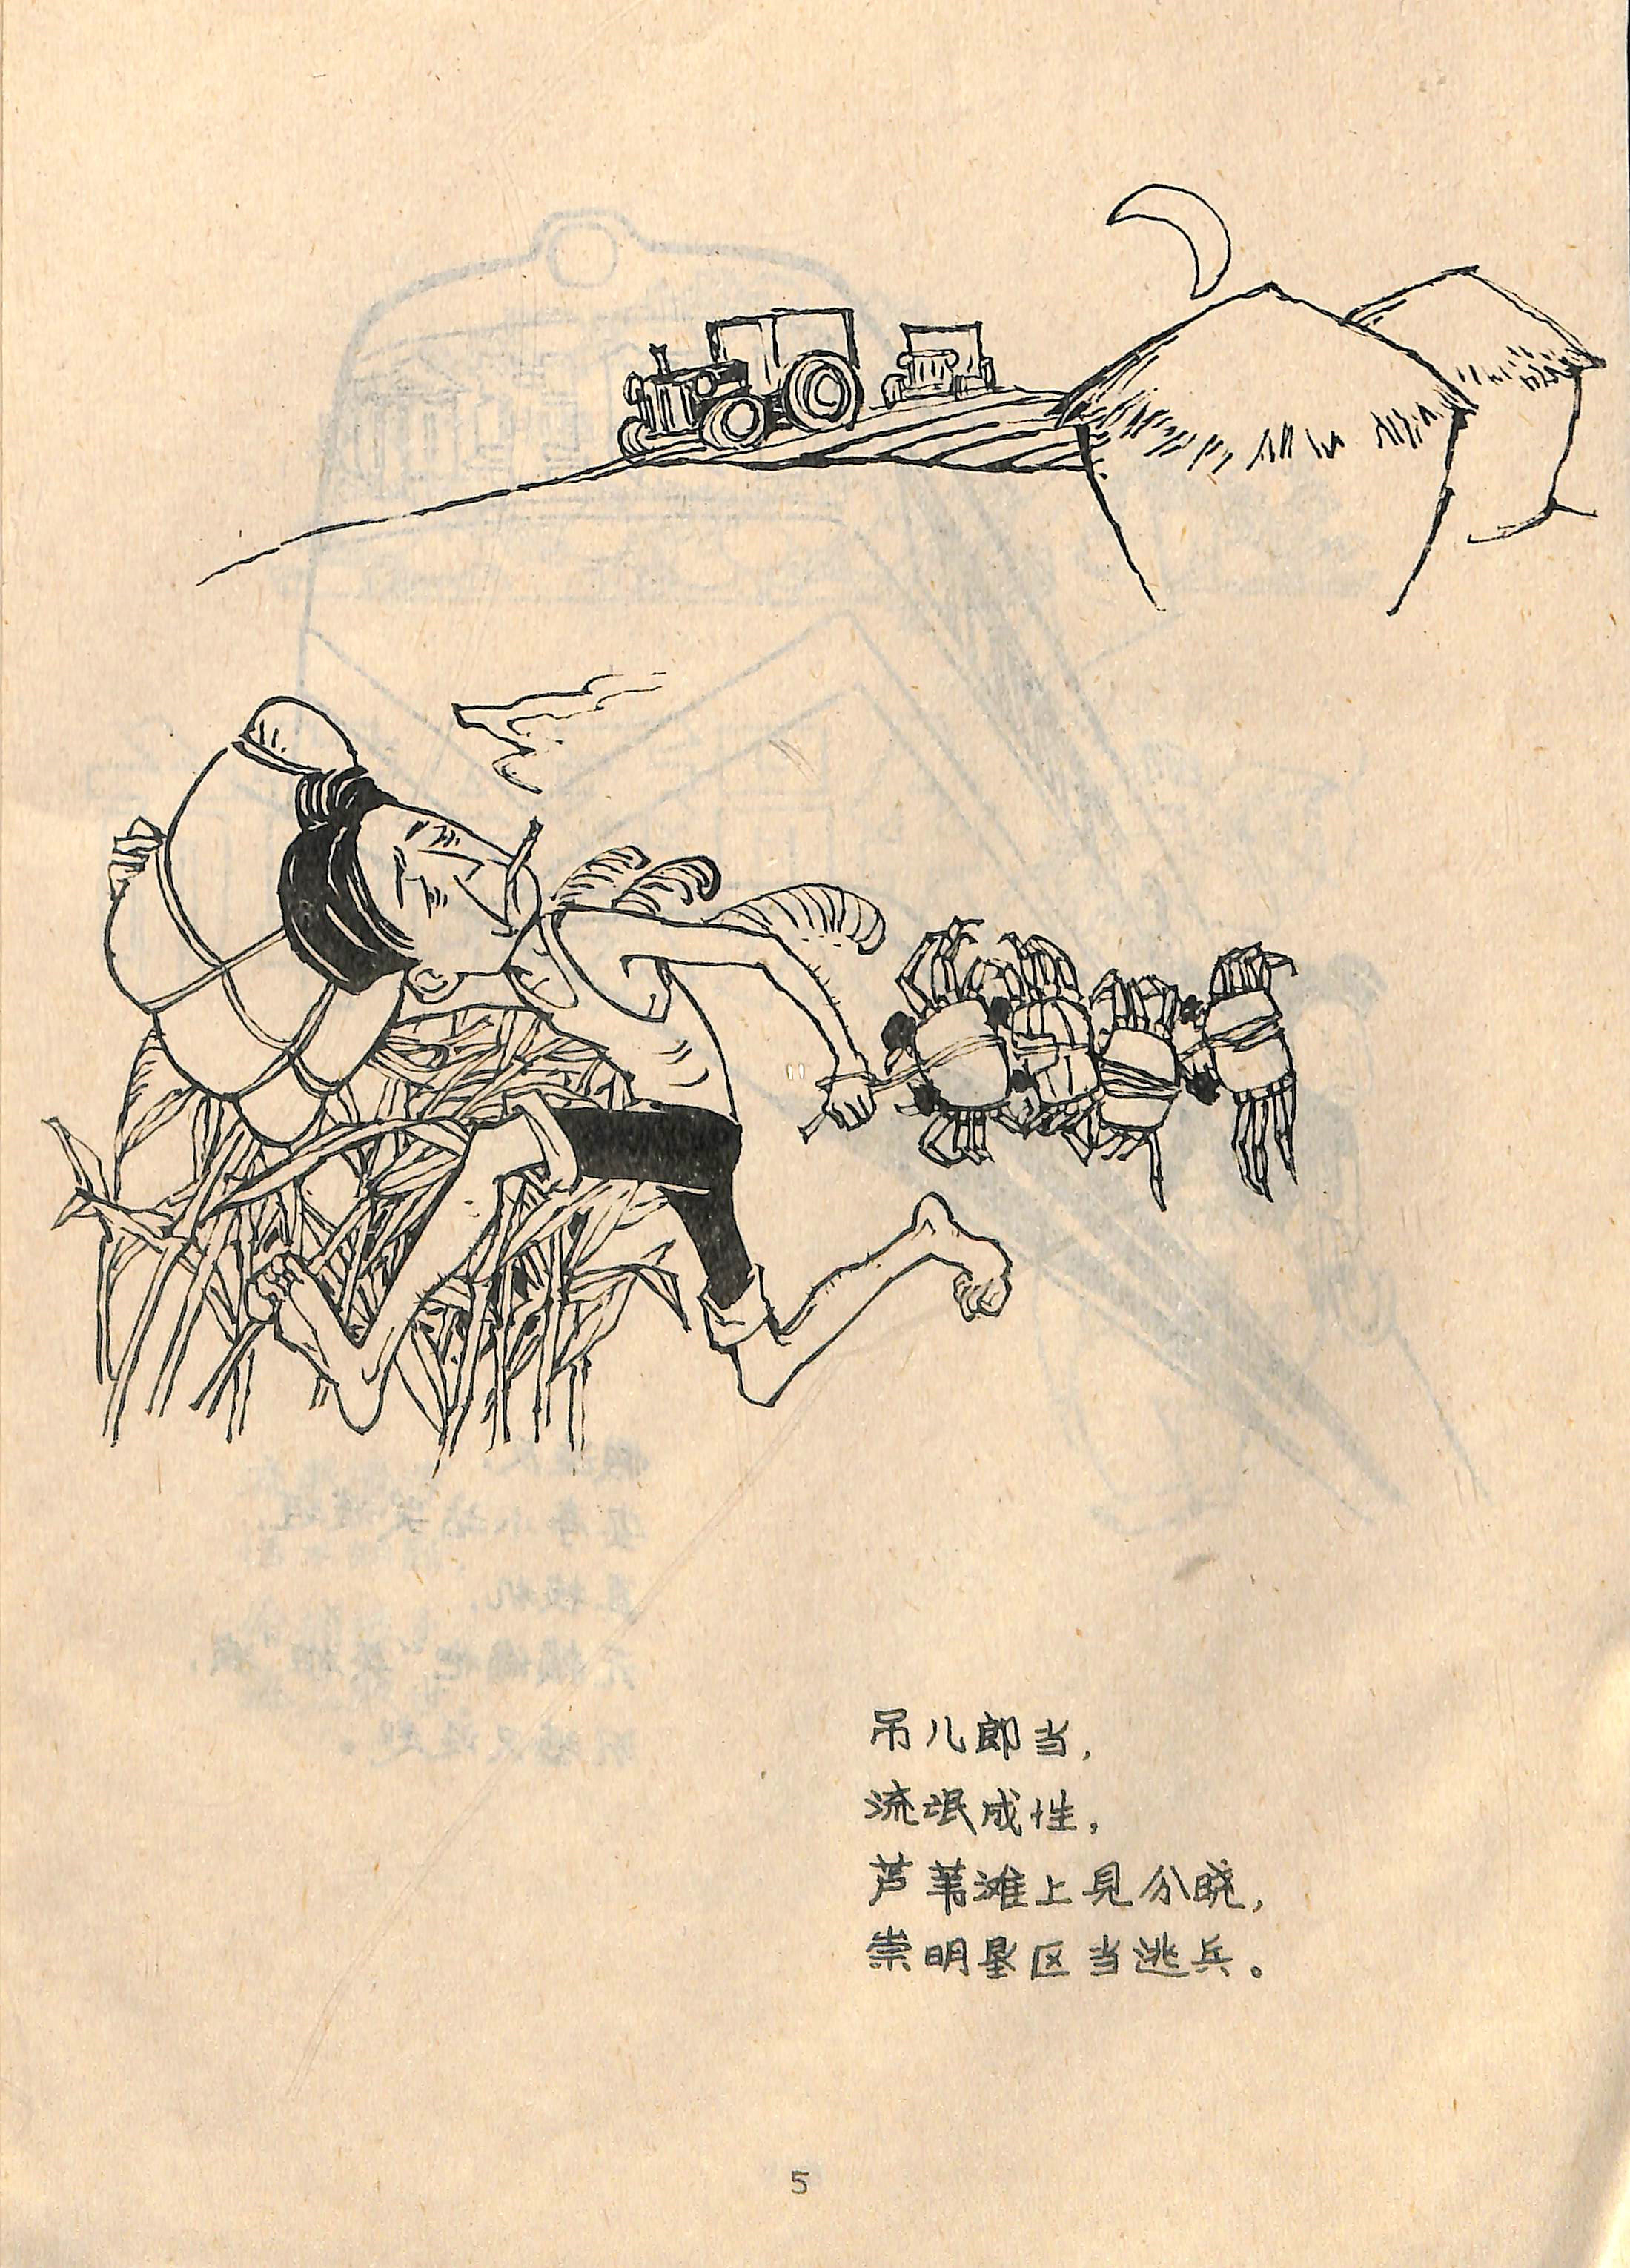 吊儿郎当，
流氓成性，
芦苇滩上見分晓，
崇明垦区当逃兵。
5